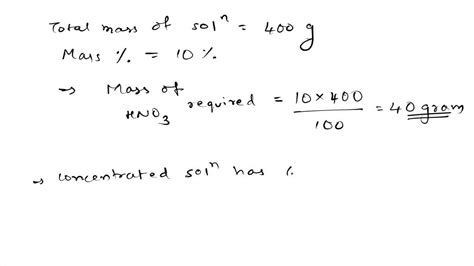 Total mass of solⁿ = 400 g
Mass % = 10 %
→ Mass of HNO₃ required = 10 × 400 / 100 = 40 gram
→ concentrated solⁿ has